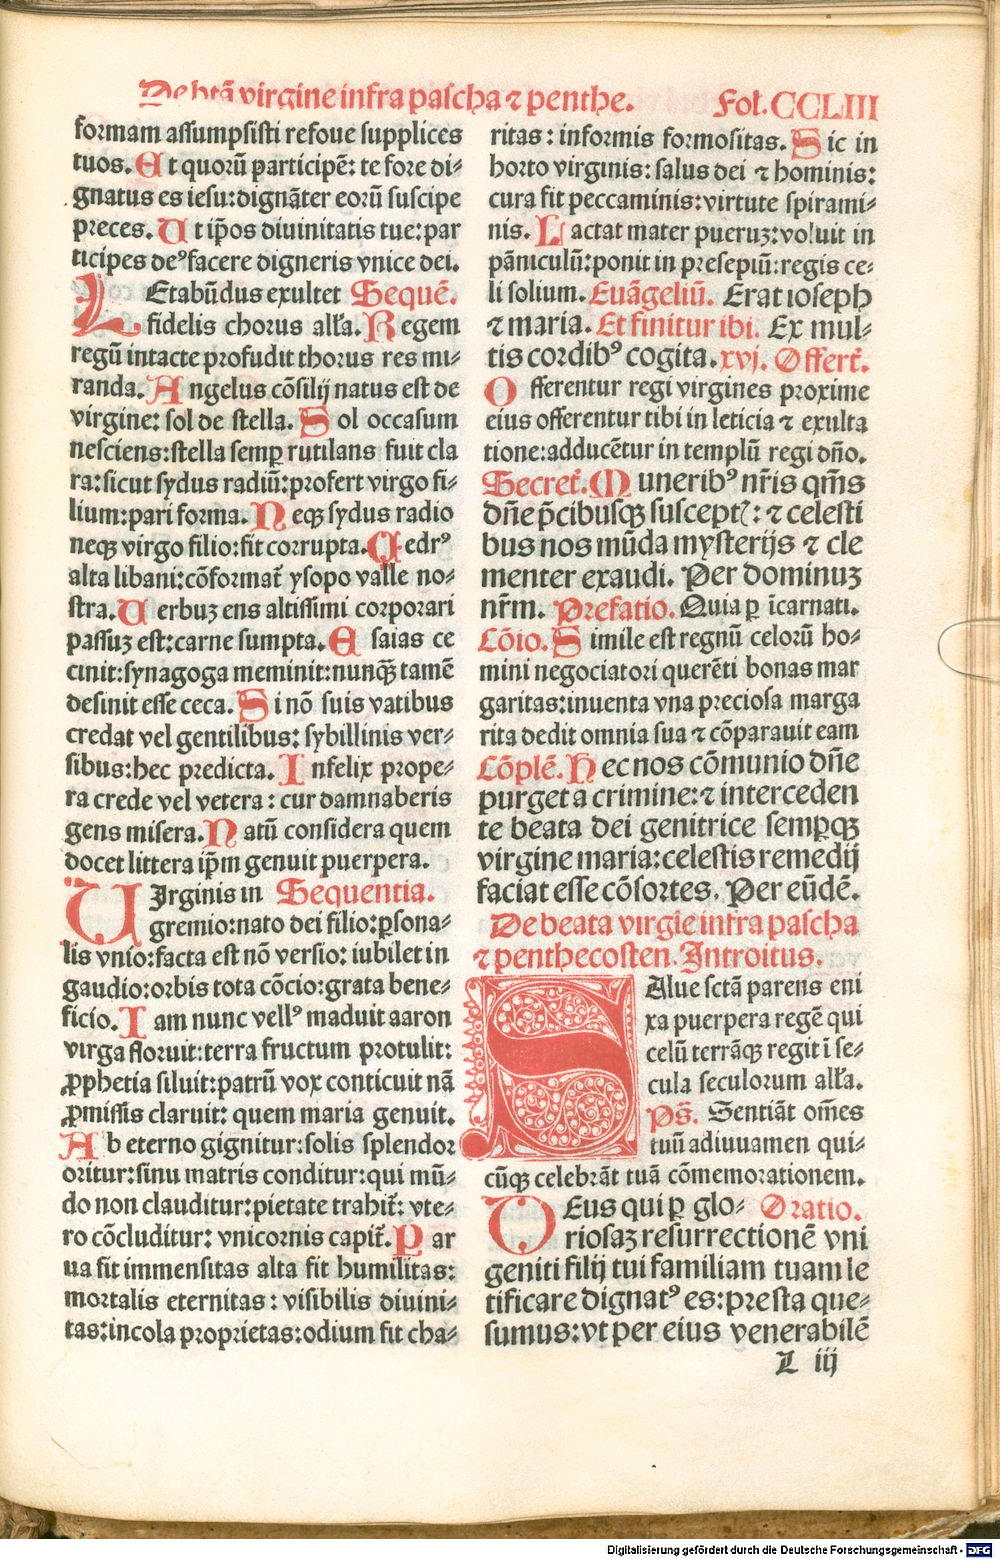 De btã virgine infra pascha ⁊ penthe. Fol. CCLIII
formam assumpsisti refoue supplices
tuos. Et quorũ participẽ: te fore di⸗
gnatus es iesu: dignãter eorũ suscipe
preces. Ut ip̃os diuinitatis tue: par
ticipes deꝰ facere digneris vnice dei.
LEtabũdus exultet Sequẽ.
fidelis chorus alľa. Regem
regũ intacte profudit thorus res mi⸗
randa. Angelus cõsilij natus est de
virgine: sol de stella. Sol occasum
nesciens: stella semꝑ rutilans fuit cla
ra: sicut sydus radiũ: profert virgo fi⸗
lium: pari forma. Neqꝫ sydus radio
neqꝫ virgo filio: fit corrupta. Cedrꝰ
alta libani: cõformať ysopo valle no⸗
stra. Uerbuꝫ ens altissimi corporari
passuꝫ est: carne sumpta. Esaias ce
cinit: synagoga meminit: nunqꝫ̃ tamẽ
desinit esse ceca. Si nõ suis vatibus
credat vel gentilibus: sybillinis ver⸗
sibus: hec predicta. Infelix prope⸗
ra crede vel vetera: cur damnaberis
gens misera. Natũ considera quem
docet littera ip̃m genuit puerpera.
UIrginis in Sequentia.
gremio: nato dei filio: ꝑsona⸗
lis vnio: facta est nõ versio: iubilet in
gaudio: orbis tota cõcio: grata bene⸗
ficio. Iam nunc vellꝰ maduit aaron
virga floruit: terra fructum protulit:
ꝓphetia siluit: patrũ vox conticuit nã
ꝓmissis claruit: quem maria genuit.
Ab eterno gignitur: solis splendor
oritur: sinu matris conditur: qui mũ⸗
do non clauditur: pietate trahiť: vte⸗
ro cõcluditur: vnicornis capiť. Par
ua fit immensitas alta fit humilitas:
mortalis eternitas: visibilis diuini⸗
tas: incola proprietas: odium fit cha⸗
ritas: informis formositas. Sic in
horto virginis: salus dei ⁊ hominis:
cura fit peccaminis: virtute spirami⸗
nis. Lactat mater pueruꝫ: voluit in
pãniculũ: ponit in presepiũ: regis ce⸗
li solium. Euãgeliũ. Erat ioseph
⁊ maria. Et finitur ibi. Ex mul⸗
tis cordibꝰ cogita. xvj. Offerť.
Offerentur regi virgines proxime
eius offerentur tibi in leticia ⁊ exulta
tione: adducẽtur in templũ regi dño.
Secreť. Muneribꝰ nr̃is qm̃s
dñe p̃cibusqꝫ susceptꝭ: ⁊ celesti
bus nos mũda mysterijs ⁊ cle
menter exaudi. Per dominuꝫ
nr̃m. Prefatio. Quia ꝑ ĩcarnati.
Cõio. Simile est regnũ celorũ ho⸗
mini negociatori querẽti bonas mar
garitas: inuenta vna preciosa marga
rita dedit omnia sua ⁊ cõparauit eam
Cõplẽ. Hec nos cõmunio dñe
purget a crimine: ⁊ interceden
te beata dei genitrice semꝑqꝫ
virgine maria: celestis remedij
faciat esse cõsortes. Per eũdẽ.
De beata virgĩe infra pascha
⁊ penthecosten. Introitus.
SAlue sctã parens eni
xa puerpera regẽ qui
celũ terrãqꝫ regit ĩ se⸗
cula seculorum alľa.
Ps̃. Sentiãt om̃es
tuũ adiuuamen qui⸗
cũqꝫ celebrãt tuã cõmemorationem.
DEus qui ꝑ glo⸗ Oratio.
riosaꝫ resurrectionẽ vni
geniti filij tui familiam tuam le
tificare dignatꝰ es: presta que⸗
sumus: vt per eius venerabilẽ
L iij
Digitalisierung gefördert durch die Deutsche Forschungsgemeinschaft - DFG